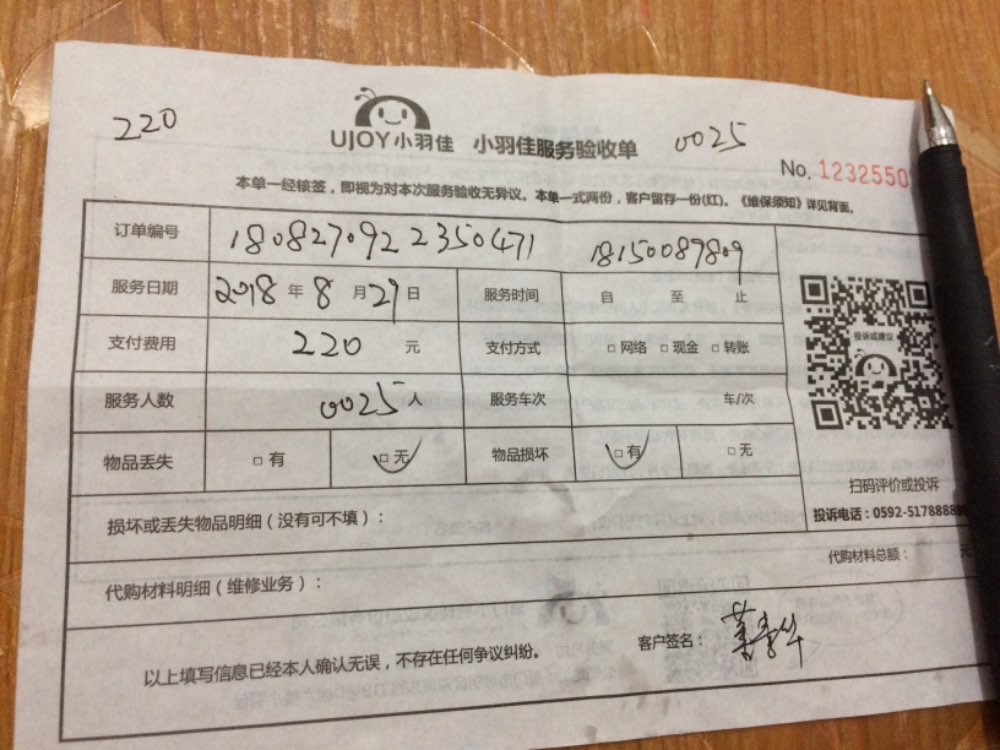 220
UJOY小羽佳 小羽佳服务验收单 0025
No. 1232550
本单一经核签，即视为对本次服务验收无异议。本单一式两份，客户留存一份(红)。《维保须知》详见背面。
订单编号 1808270922350471 18150089809
服务日期 2018 年 8 月 29 日 服务时间 自 至 止
支付费用 220 元 支付方式 □ 网络 □ 现金 □ 转账
投诉或建议
服务人数 0025 服务车次 车/次
物品丢失 □ 有 □ 无 物品损坏 □ 有 □ 无
扫码评价或投诉
损坏或丢失物品明细（没有可不填）：
投诉电话：0592-517888
代购材料明细（维修业务）： 代购材料总额： 元
以上填写信息已经本人确认无误，不存在任何争议纠纷。 客户签名：